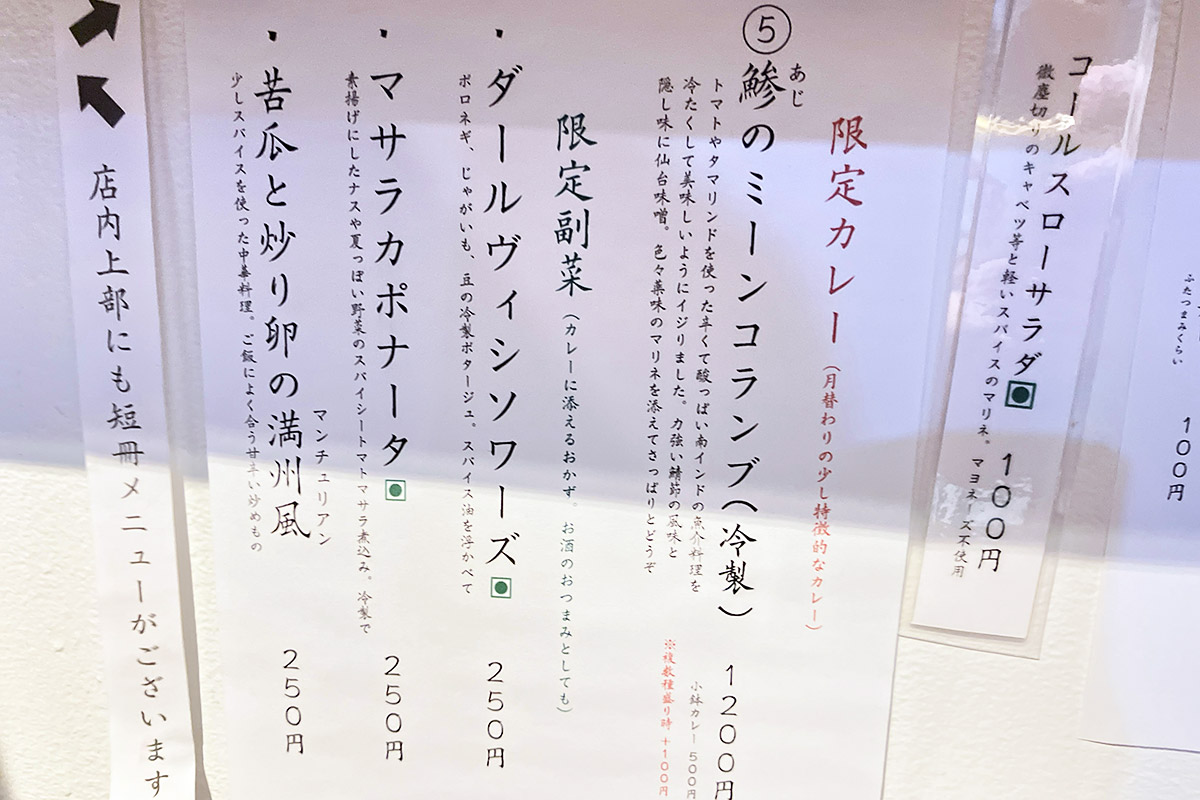 ふたつまみくらい
100円
コールスローサラダ 100円
微塵切りのキャベツ等と軽いスパイスのマリネ。 マヨネーズ不使用
限定カレー (月替わりの少し特徴的なカレー)
あじ
⑤鯵のミーンコランブ(冷製) 1200円
トマトやタマリンドを使った辛くて酸っぱい南インドの魚介料理を
冷たくして美味しいようにイジりました。力強い鯖節の風味と
隠し味に仙台味噌。色々薬味のマリネを添えてさっぱりとどうぞ
小鉢カレー 500円
※複数種盛り時 +100円
限定副菜 (カレーに添えるおかず。お酒のおつまみとしても)
・ダールヴィシソワーズ 250円
ポロネギ、じゃがいも、豆の冷製ポタージュ。スパイス油を浮かべて
・マサラカポナータ 250円
素揚げにしたナスや夏っぽい野菜のスパイシートマトマサラ煮込み。冷製で
マンチュリアン
・苦瓜と炒り卵の満州風 250円
少しスパイスを使った中華料理。ご飯によく合う甘辛い炒めもの
店内上部にも短冊メニューがございます